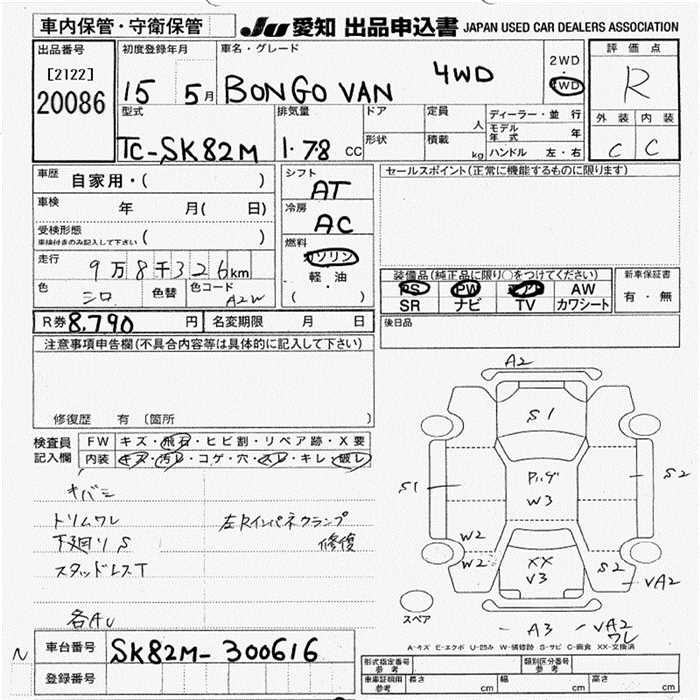 車内保管・守衛保管
JU 愛知 出品申込書 JAPAN USED CAR DEALERS ASSOCIATION
出品番号
[2122]
20086
初度登録年月
15 5月
車名・グレード
BONGO VAN 4WD
2WD
・
4WD
評価点
R
外装 内装
C C
型式
TC-SK82M
排気量
1.78 CC
ドア
形状
定員
人
積載
kg
ディーラー・並行
モデル年式 年
ハンドル 左・右
車歴
自家用・( )
車検
年 月( 日)
受検形態
車検付きのみ記入して下さい ( )
走行
9万8千326km
色
シロ
色替
色コード
A2W
シフト
AT
冷房
AC
燃料
ガソリン
軽・油
( )
セールスポイント(正常に機能するものに限ります)
装備品(純正品に限り○をつけてください)
PS PW エアB AW
SR ナビ TV カワシート
新車保証書
有・無
後日品
R券 8,790 円 名変期限 月 日
注意事項申告欄(不具合内容等は具体的に記入して下さい)
修復歴 有 〔箇所 〕
検査員記入欄
FW キズ・飛石・ヒビ割・リペア跡・X要
内装 キズ・汚レ・コゲ・穴・スレ・キレ・破レ
トリムワレ
下廻りS
スタッドレスT
各AU
左Rインパネクランプ
修復
A2
S1
S1
S2
W3
W2
W2
XX
V3
S2
VA2
A3
VA2
ワレ
スペア
A-キズ E-エクボ U-凹み W-補修跡 S-サビ C-腐食 XX-交換済
N
車台番号 SK82M-300616
登録番号
形式指定番号
参考
類別区分番号
参考
車庫証明用
参考
長さ cm 幅 cm 高さ cm